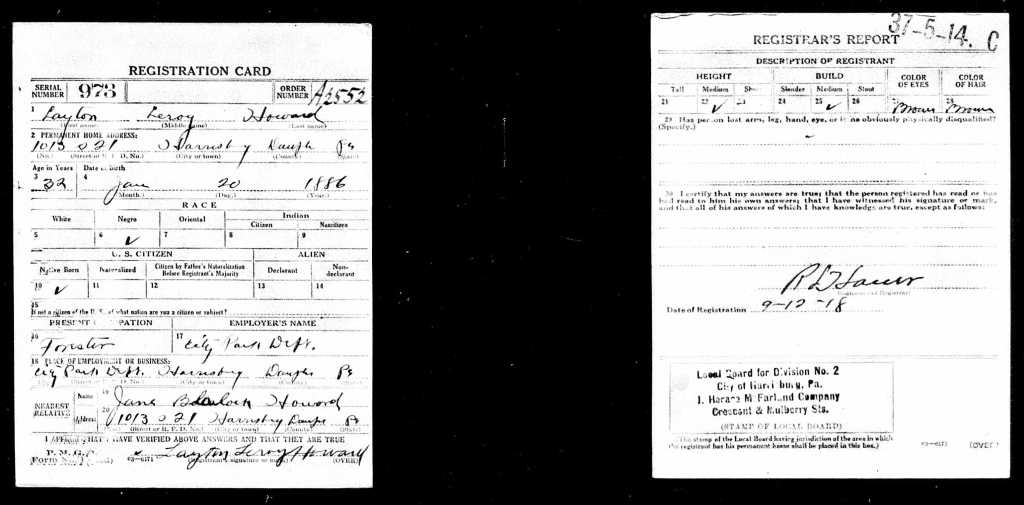 REGISTRATION CARD
SERIAL NUMBER 973 ORDER NUMBER A2552
1 Layton Leroy Howard
(First name) (Middle name) (Last name)
2 PERMANENT HOME ADDRESS:
1013 S 21 Harrisbg Dauph Pa
(No.) (Street or R. F. D. No.) (City or town) (County) (State)
Age in Years Date of Birth
3 32 4 Jan 20 1886
(Month.) (Day.) (Year.)
RACE
White Negro Oriental Indian
Citizen Noncitizen
5 6 ✓ 7 8 9
U. S. CITIZEN ALIEN
Native Born Naturalized Citizen by Father's Naturalization Before Registrant's Majority Declarant Non-declarant
10 ✓ 11 12 13 14
15
If not a citizen of the U. S., of what nation are you a citizen or subject?
PRESENT OCCUPATION EMPLOYER'S NAME
16 Forester 17 City Park Dept.
18 PLACE OF EMPLOYMENT OR BUSINESS:
City Park Dept. Harrisbg Dauph Pa
(No.) (Street or R. F. D. No.) (City or town) (County) (State)
NEAREST RELATIVE Name 19 Jane Howard
Address 20 1013 S 21 Harrisbg Dauph Pa
(No.) (Street or R. F. D. No.) (City or town) (County) (State)
I AFFIRM THAT I HAVE VERIFIED ABOVE ANSWERS AND THAT THEY ARE TRUE
P. M. G. O.
(Form No. 1 (Red) 03-6171 Layton Leroy Howard
(Registrant's signature or mark) (OVER)
37-5-14. C
REGISTRAR'S REPORT
DESCRIPTION OF REGISTRANT
HEIGHT BUILD COLOR OF EYES COLOR OF HAIR
Tall Medium Short Slender Medium Stout
21 22 ✓ 23 24 25 ✓ 26 27 Brown 28 Brown
29 Has person lost arm, leg, hand, eye, or is he obviously physically disqualified?
(Specify.)
30 I certify that my answers are true; that the person registered has read or has
had read to him his own answers; that I have witnessed his signature or mark,
and that all of his answers of which I have knowledge are true, except as follows:
(Signature of Registrar)
Date of Registration 9-12-18
Local Board for Division No. 2
City of Harrisburg, Pa.
J. Horace McFarland Company
Crescent & Mulberry Sts.
(STAMP OF LOCAL BOARD)
(The stamp of the Local Board having jurisdiction of the area in which
the registrant has his permanent home shall be placed in this box.)
03-6171 (OVER)